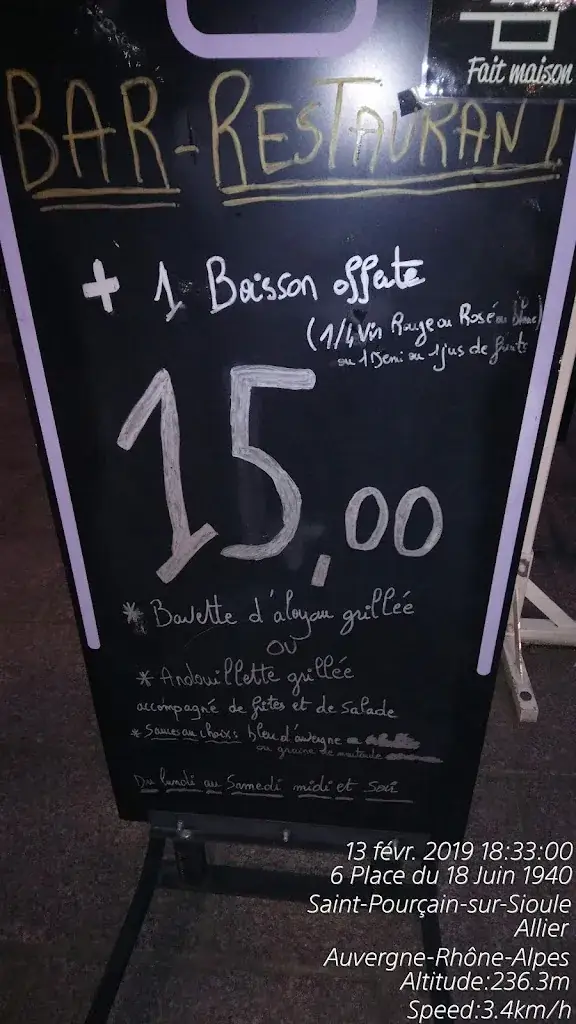 Fait maison
BAR-RESTAURANT
+ 1 Boisson offerte
(1/4 Vin Rouge ou Rosé ou blanc)
ou 1 Demi ou 1 jus de fruits
15,00
* Bavette d'aloyau grillée
OU
* Andouillette grillée
accompagné de frites et de salade
* Sauces au choix: bleu d'auvergne ou
ou graine de moutarde
Du lundi au Samedi midi et Soir
13 févr. 2019 18:33:00
6 Place du 18 Juin 1940
Saint-Pourçain-sur-Sioule
Allier
Auvergne-Rhône-Alpes
Altitude:236.3m
Speed:3.4km/h